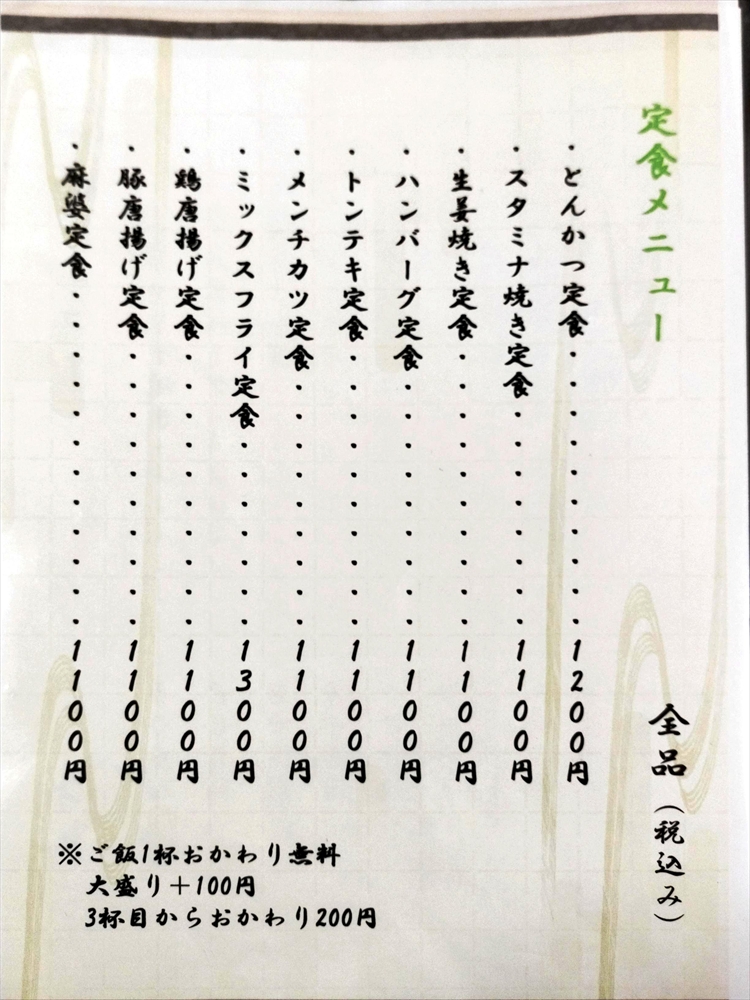 定食メニュー
全品（税込み）
・とんかつ定食・・・・・・・・・・1200円
・スタミナ焼き定食・・・・・・・・1100円
・生姜焼き定食・・・・・・・・・・1100円
・ハンバーグ定食・・・・・・・・・1100円
・トンテキ定食・・・・・・・・・・1100円
・メンチカツ定食・・・・・・・・・1100円
・ミックスフライ定食・・・・・・・1300円
・鶏唐揚げ定食・・・・・・・・・・1100円
・豚唐揚げ定食・・・・・・・・・・1100円
・麻婆定食・・・・・・・・・・・・1100円
※ご飯1杯おかわり無料
大盛り＋100円
3杯目からおかわり200円